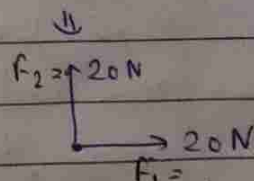 F₂ = 20N
20N
F₁ =